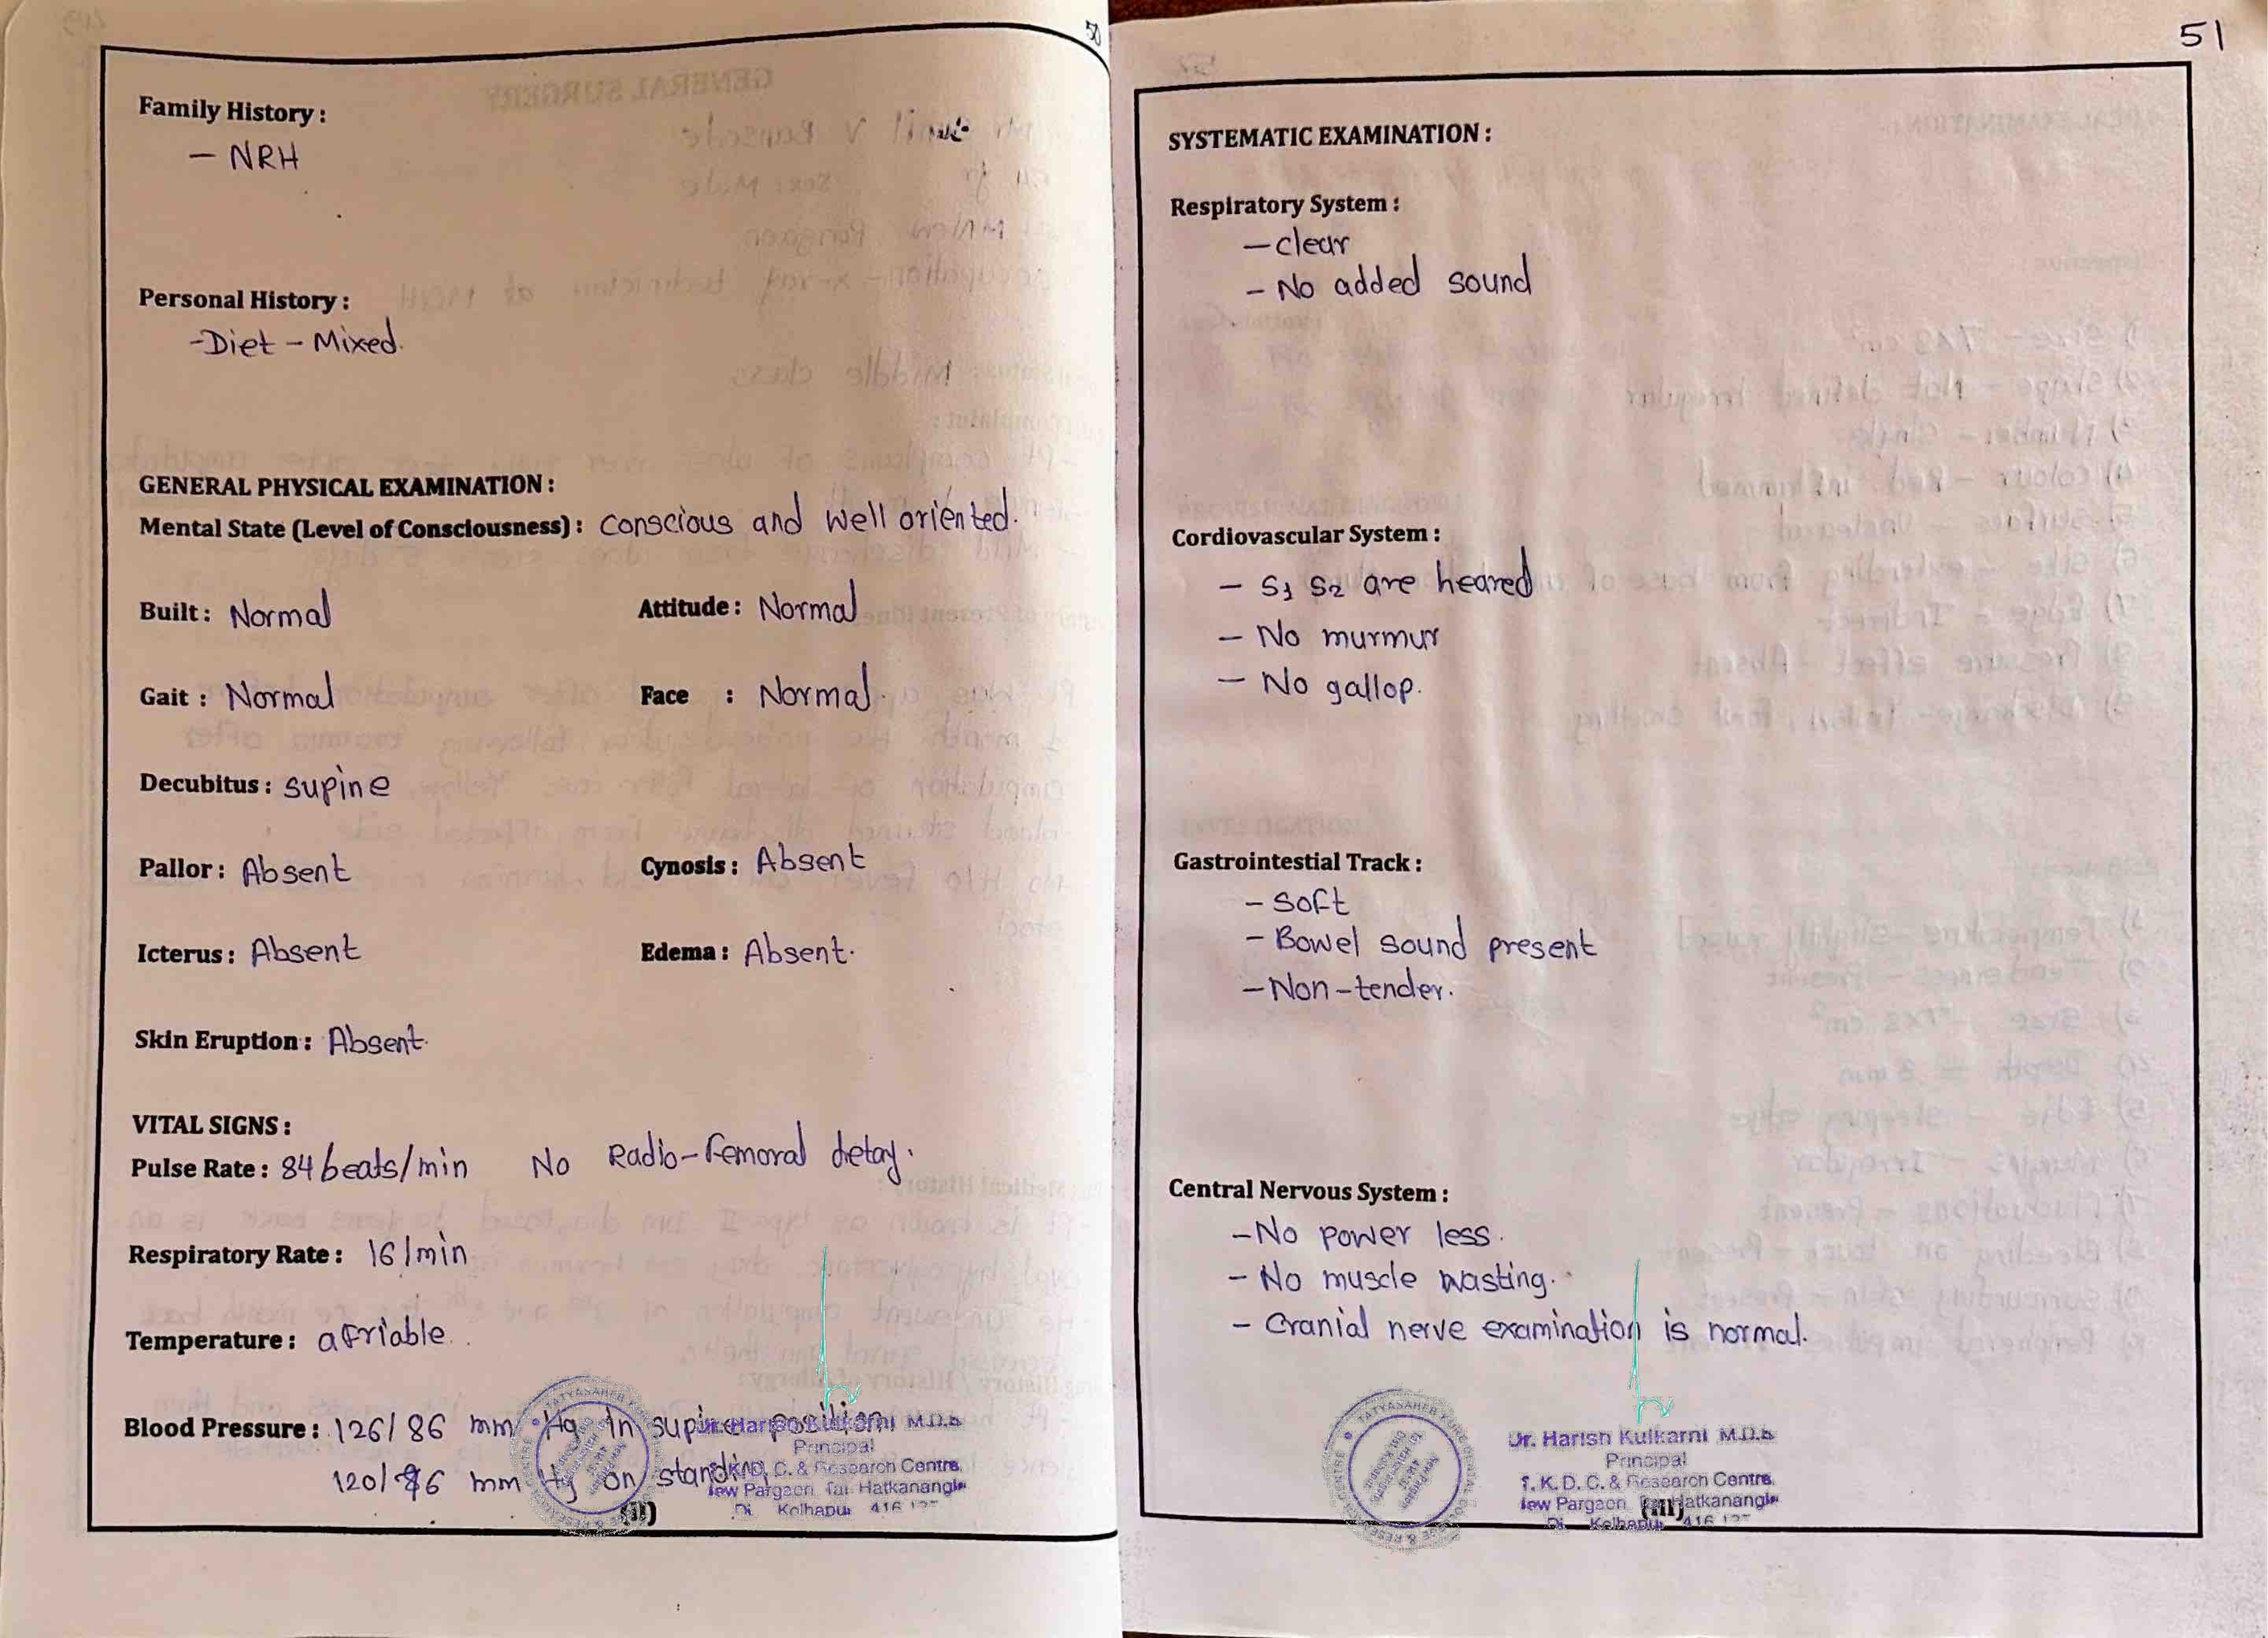 50
Family History :
– NRH
Personal History :
-Diet – Mixed.
GENERAL PHYSICAL EXAMINATION :
Mental State (Level of Consciousness) : conscious and well oriented.
Built : Normal Attitude : Normal
Gait : Normal Face : Normal.
Decubitus : supine
Pallor : Absent Cynosis : Absent
Icterus : Absent Edema : Absent.
Skin Eruption : Absent.
VITAL SIGNS :
Pulse Rate : 84 beats/min No Radio-femoral delay.
Respiratory Rate : 16/min
Temperature : afriable.
Blood Pressure : 126/86 mm Hg in supine position
120/86 mm Hg on standing
Dr. Harish Kulkarni M.D.S
Principal
K. D. C. & Research Centre
New Pargaon, Tal. Hatkanangle
Di Kolhapur 416
(II)
51
SYSTEMATIC EXAMINATION :
Respiratory System :
– clear
– No added sound
Cordiovascular System :
– S1 S2 are heared
– No murmur
– No gallop.
Gastrointestial Track :
– Soft
– Bowel sound present
– Non-tender.
Central Nervous System :
– No power less.
– No muscle wasting.
– Cranial nerve examination is normal.
TATYASAHEB
Dr. Harish Kulkarni M.D.S
Principal
T. K. D. C. & Research Centre
New Pargaon, Hatkanangle
Di Kolhapur 416
(III)